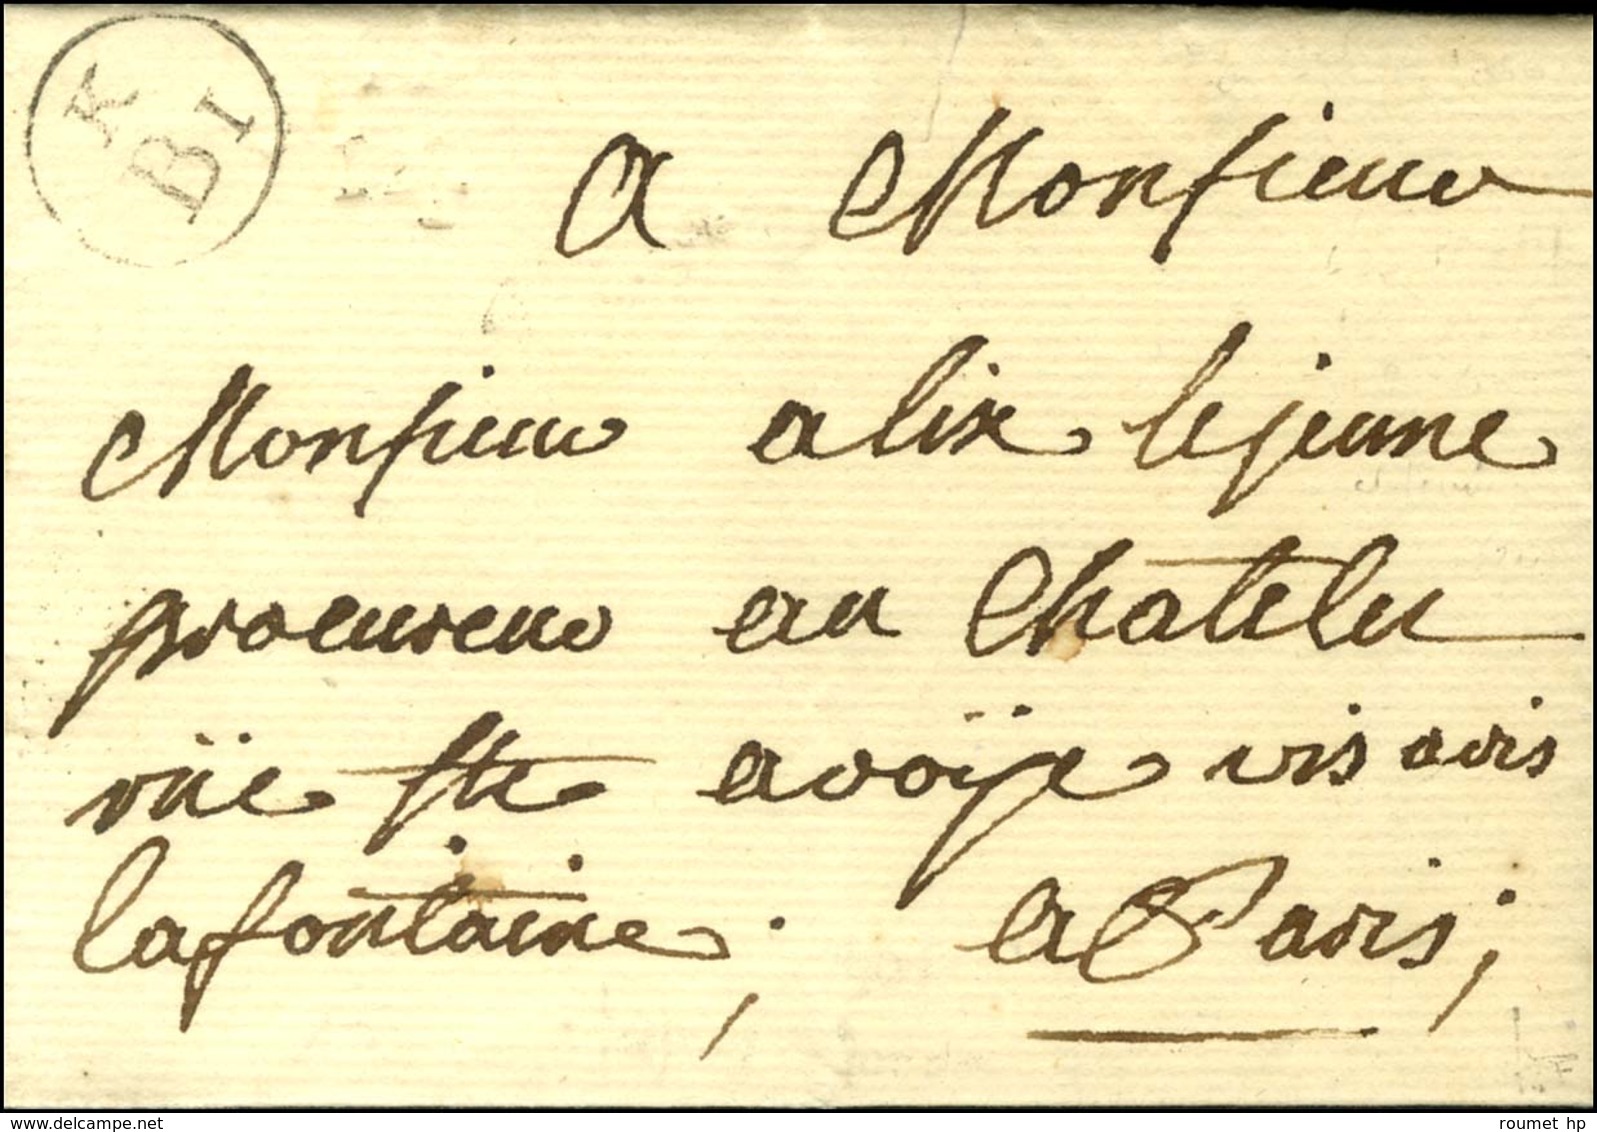 K
B I
A Monsieur
Monsieur alix le jeune
procureur au Chatelet
rüe Ste avoÿe vis avis
la fontaine;
a Paris;
delcampe.net
roumet hp